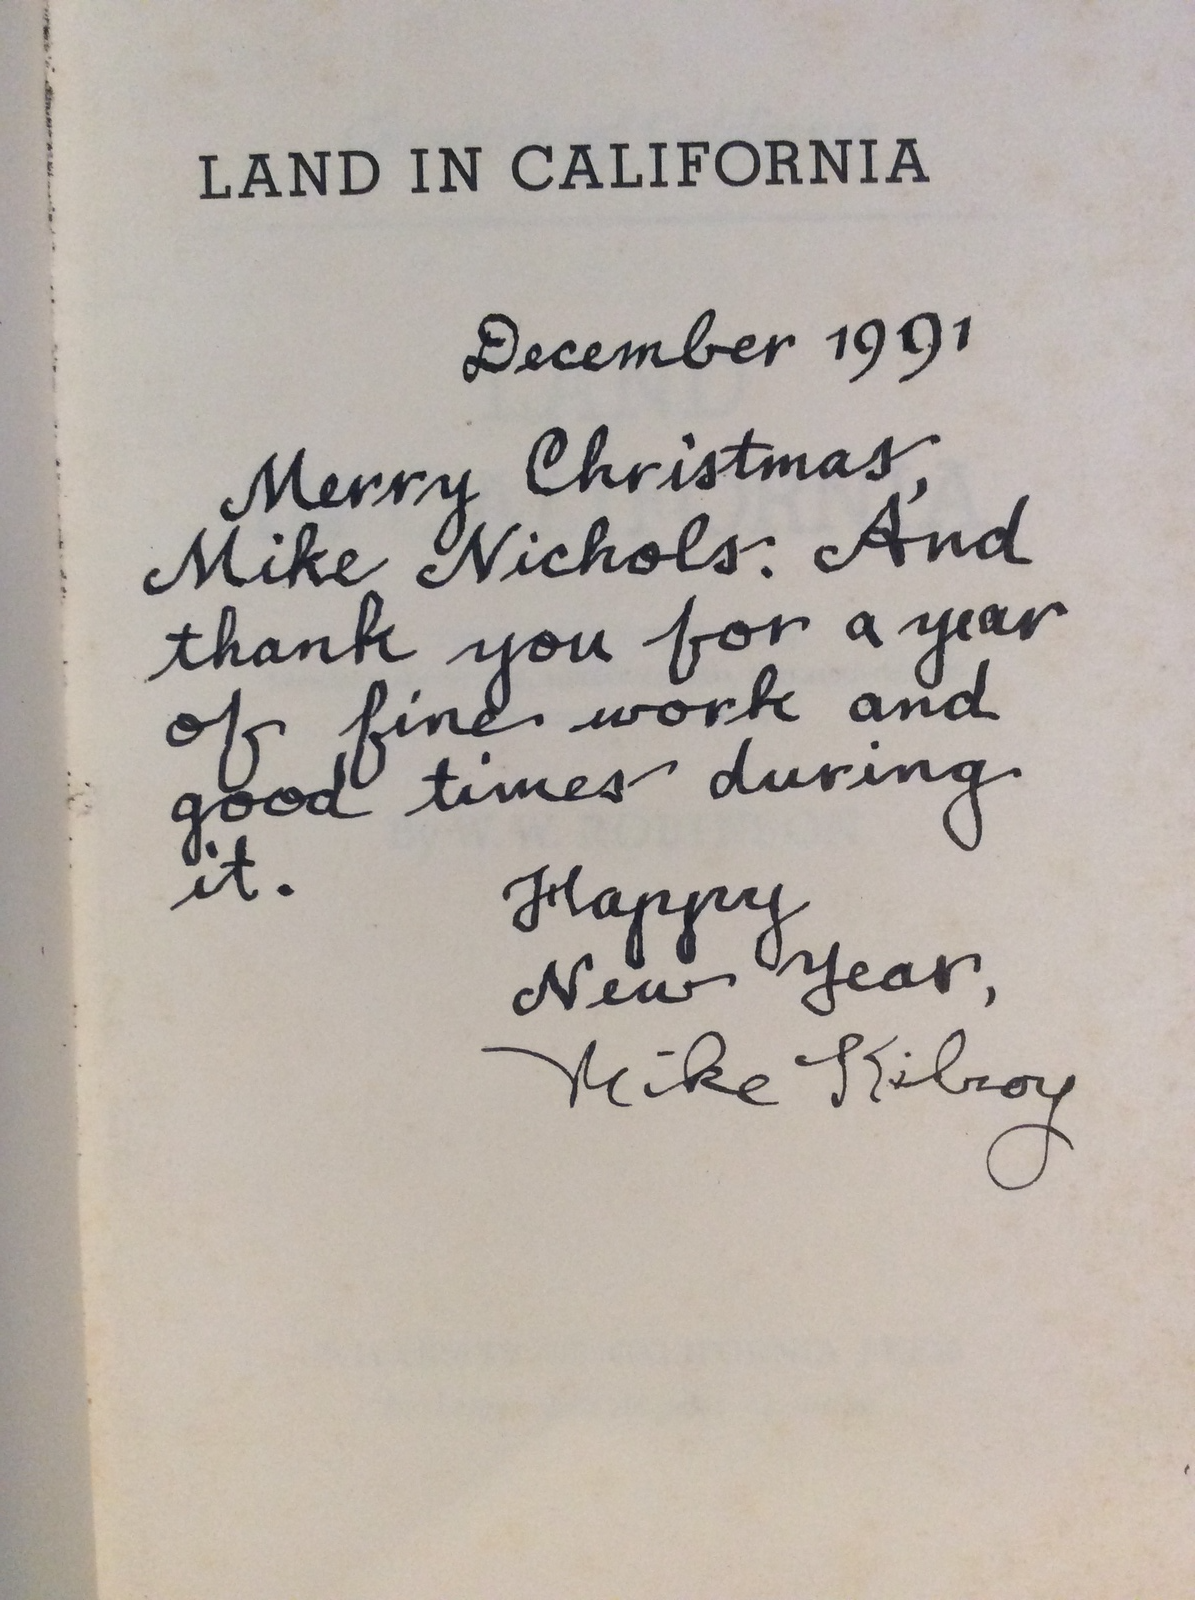 LAND IN CALIFORNIA
December 1991
Merry Christmas,
Mike Nichols. And
thank you for a year
of fine work and
good times during
it.
Happy
New Year,
Mike Kilroy